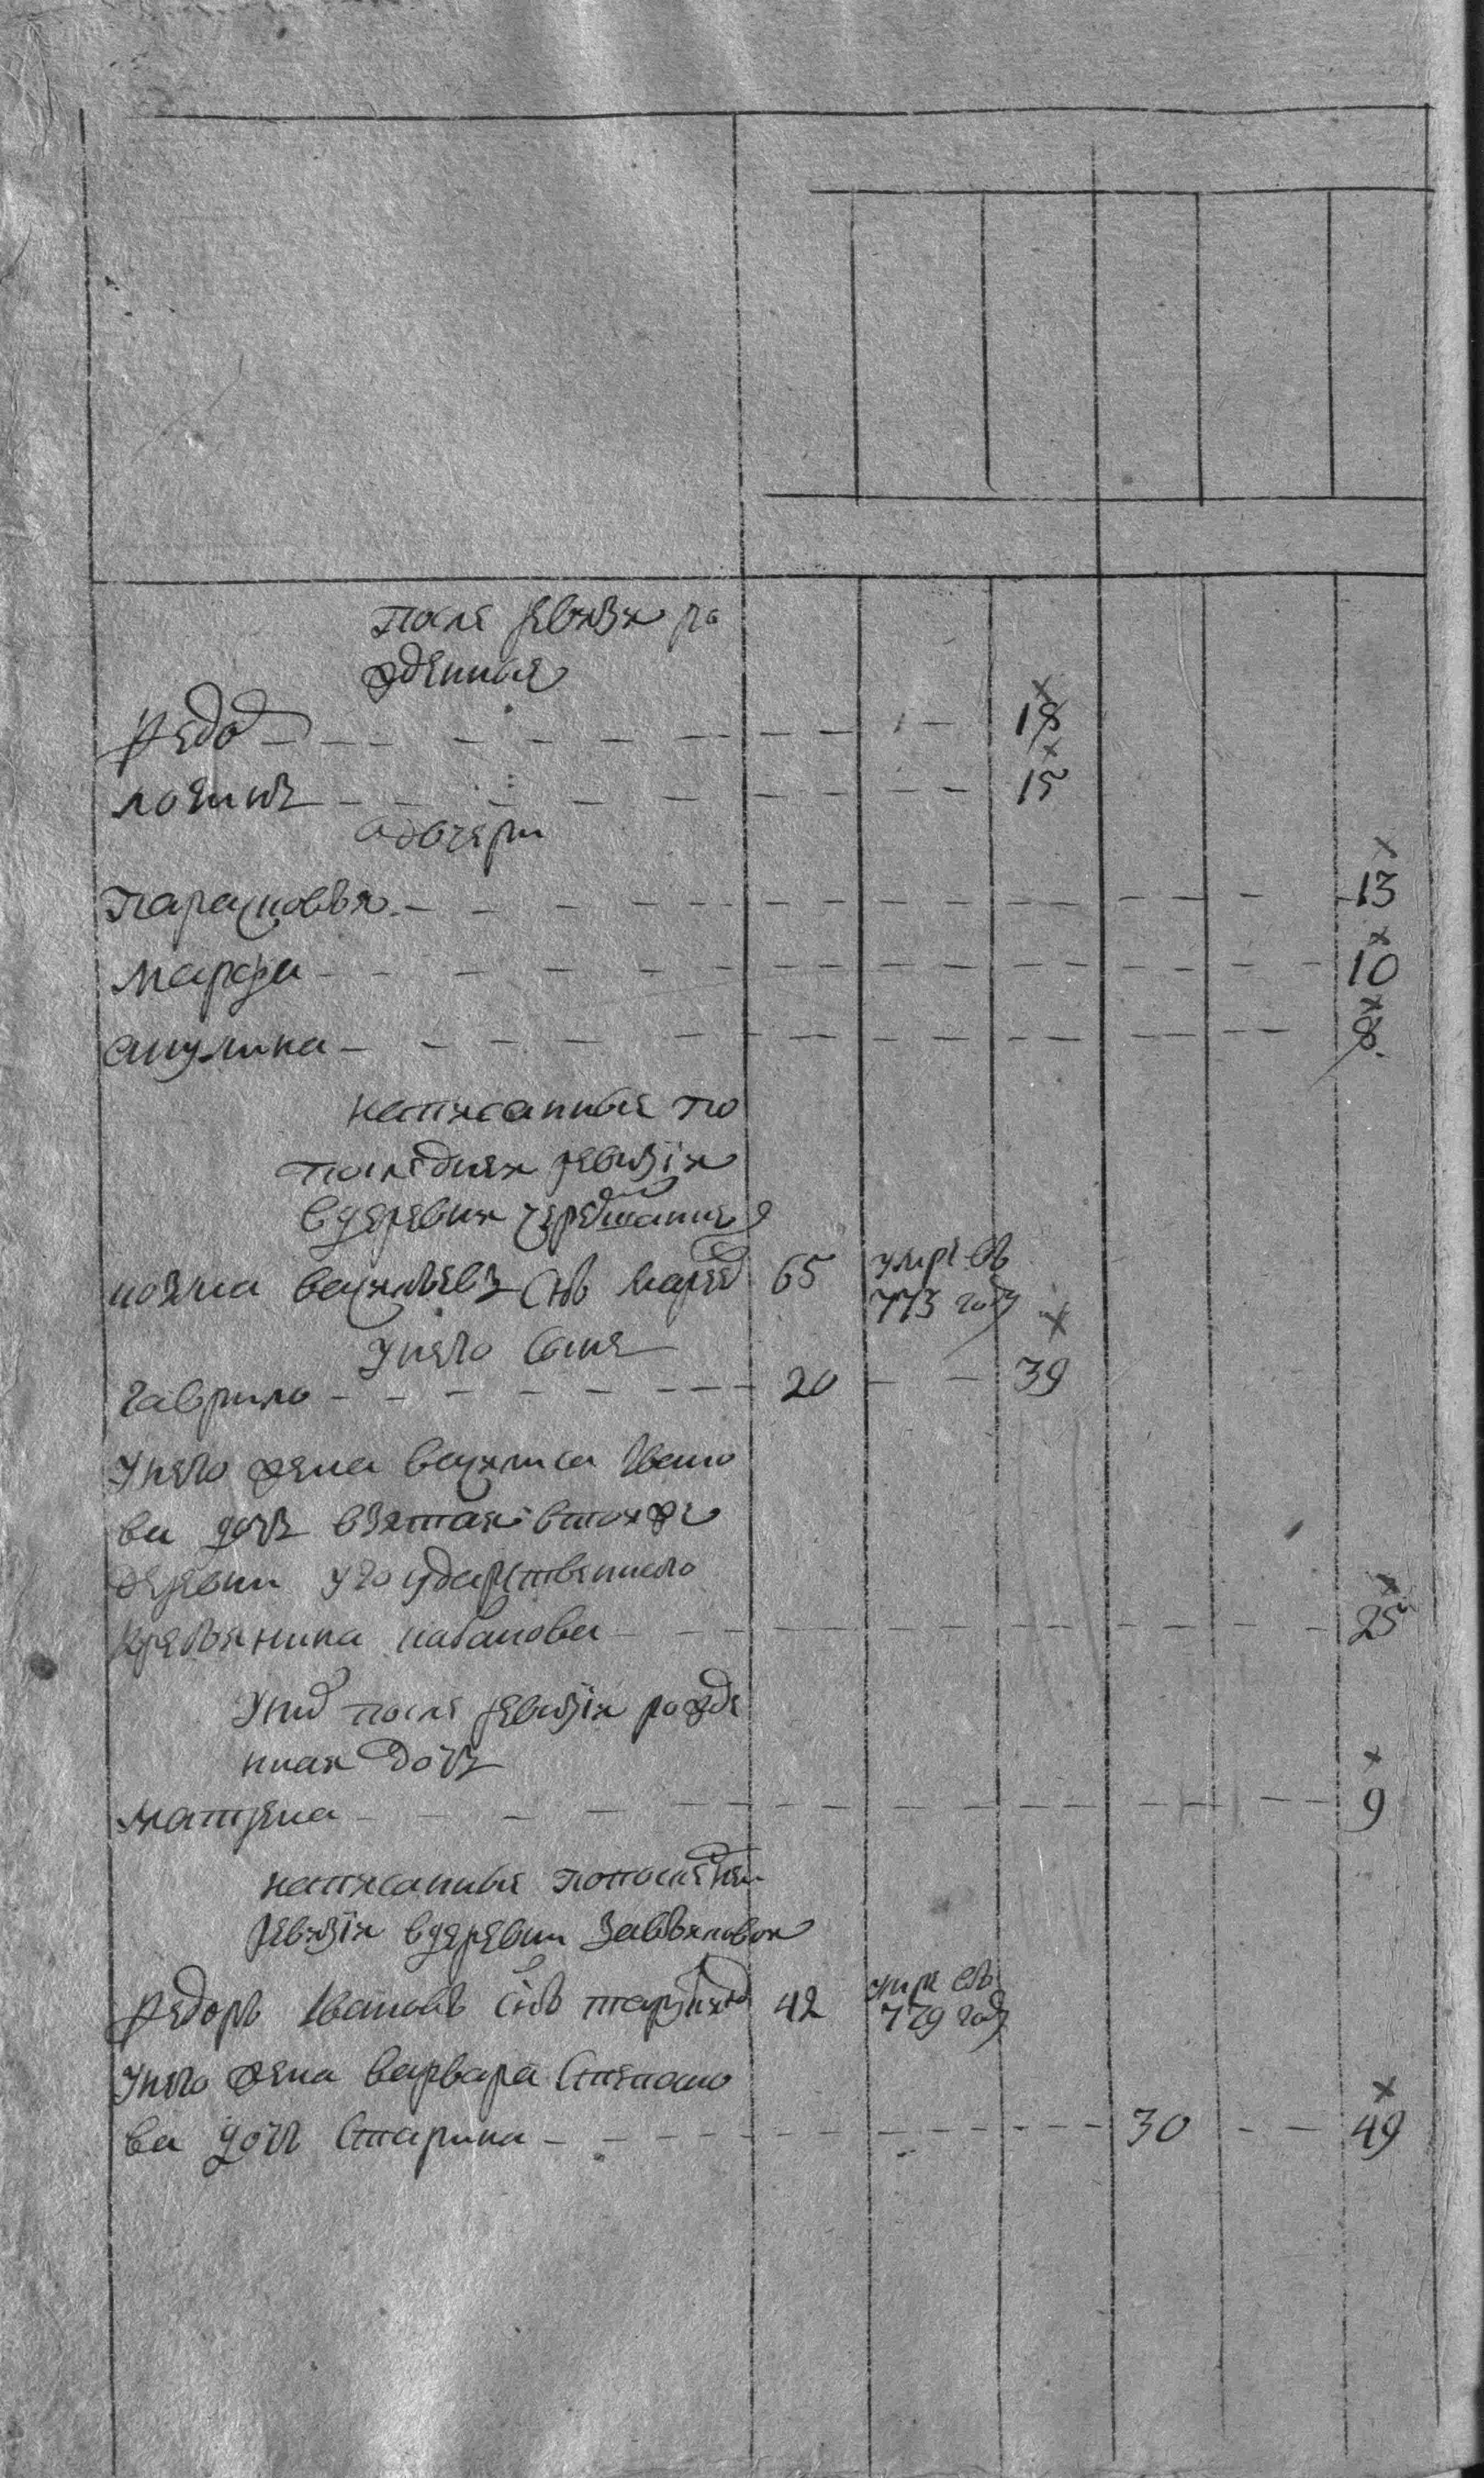 после ревизи ро
жденные
Федоръ 18
логинъ 15
адочери
Парасковья 13
марфа 10
акулина 8
написанные по
последней ревизіи
вдеревни
козма васильевъ снъ 65 умре въ
773 году
унего сынъ
гаврило 20 39
унего жена василиса Ивано
ва дочь взятая втойже
деревни угосударственного
крестьянина кабакова 25
уних после ревизіи рожде
нная дочь
матрена 9
написанные попоследней
ревизіи вдеревни завьяловой
Федоръ Ивановъ снъ 42 умре въ
779 году
унего жена варвара Степано
ва дочь 30 49